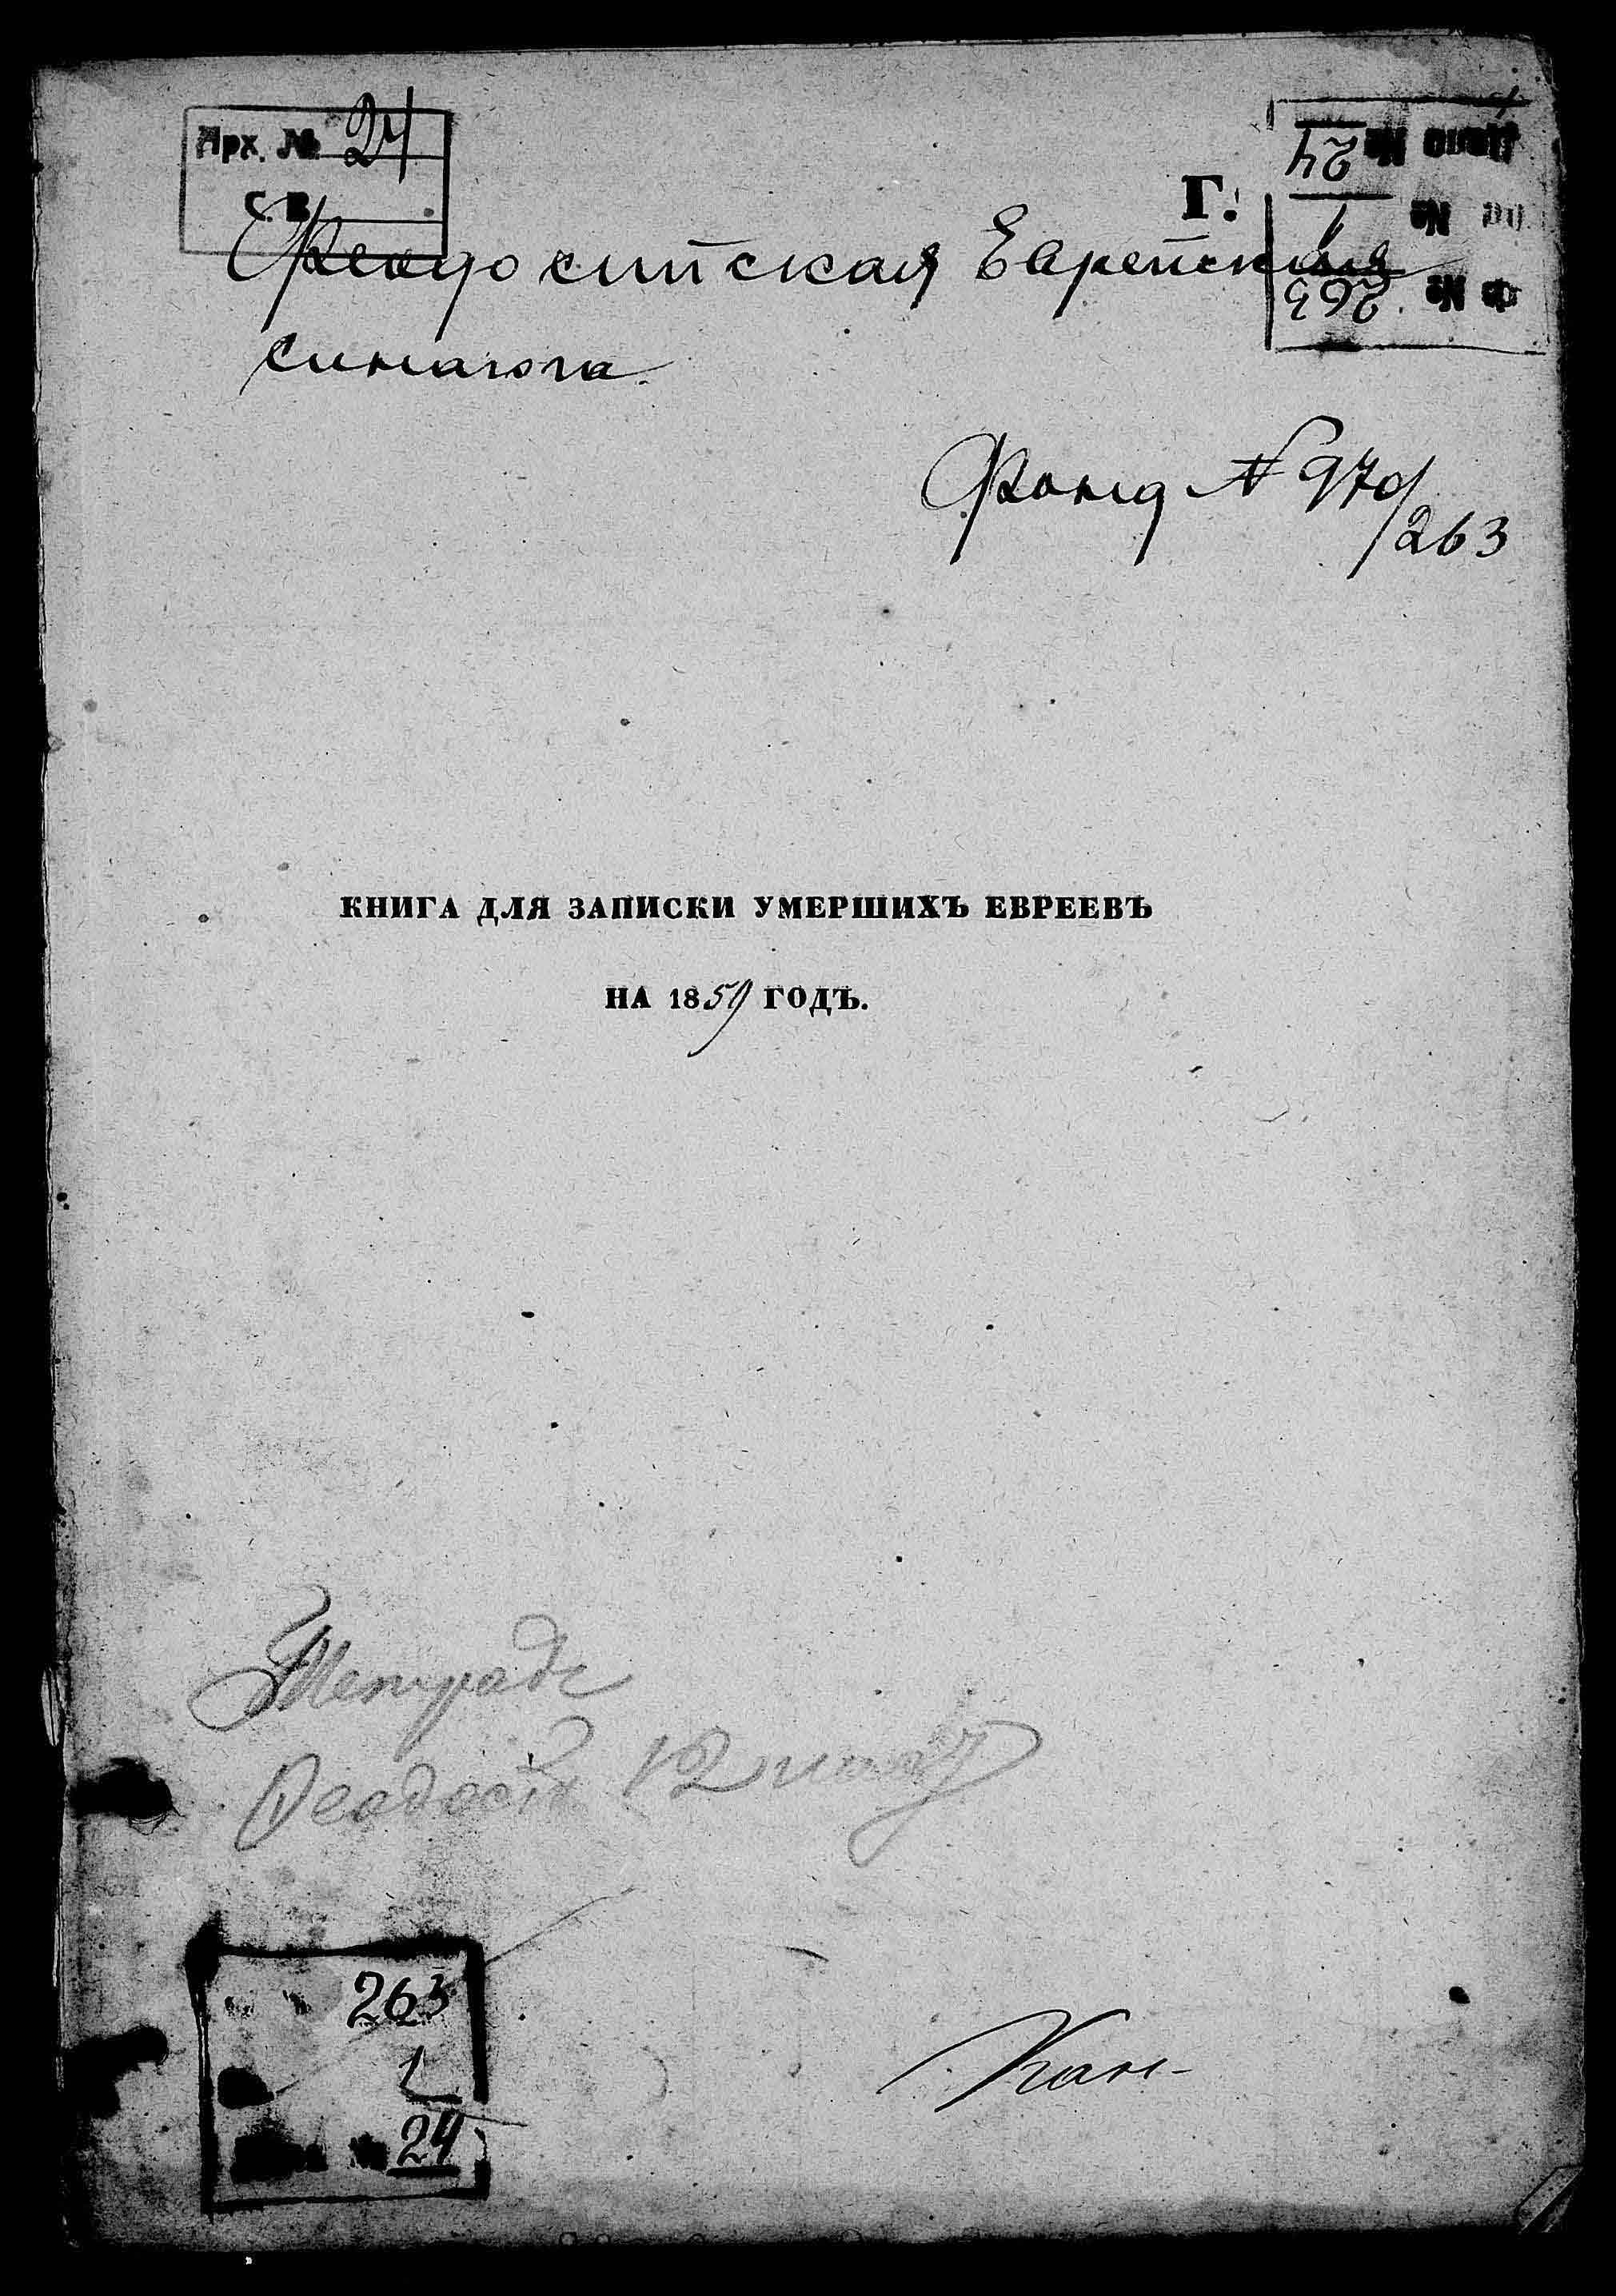 Арх. № 24
С. В.
Г.
Дело № 24
Оп. № 1
Ф № 263
Феодосийская Еврейская
синагога.
Фонд N 970/263
КНИГА ДЛЯ ЗАПИСКИ УМЕРШИХЪ ЕВРЕЕВЪ
НА 1859 ГОДЪ.
Тетрадь
Ѳеодосія 12
263
1
24
Кан-